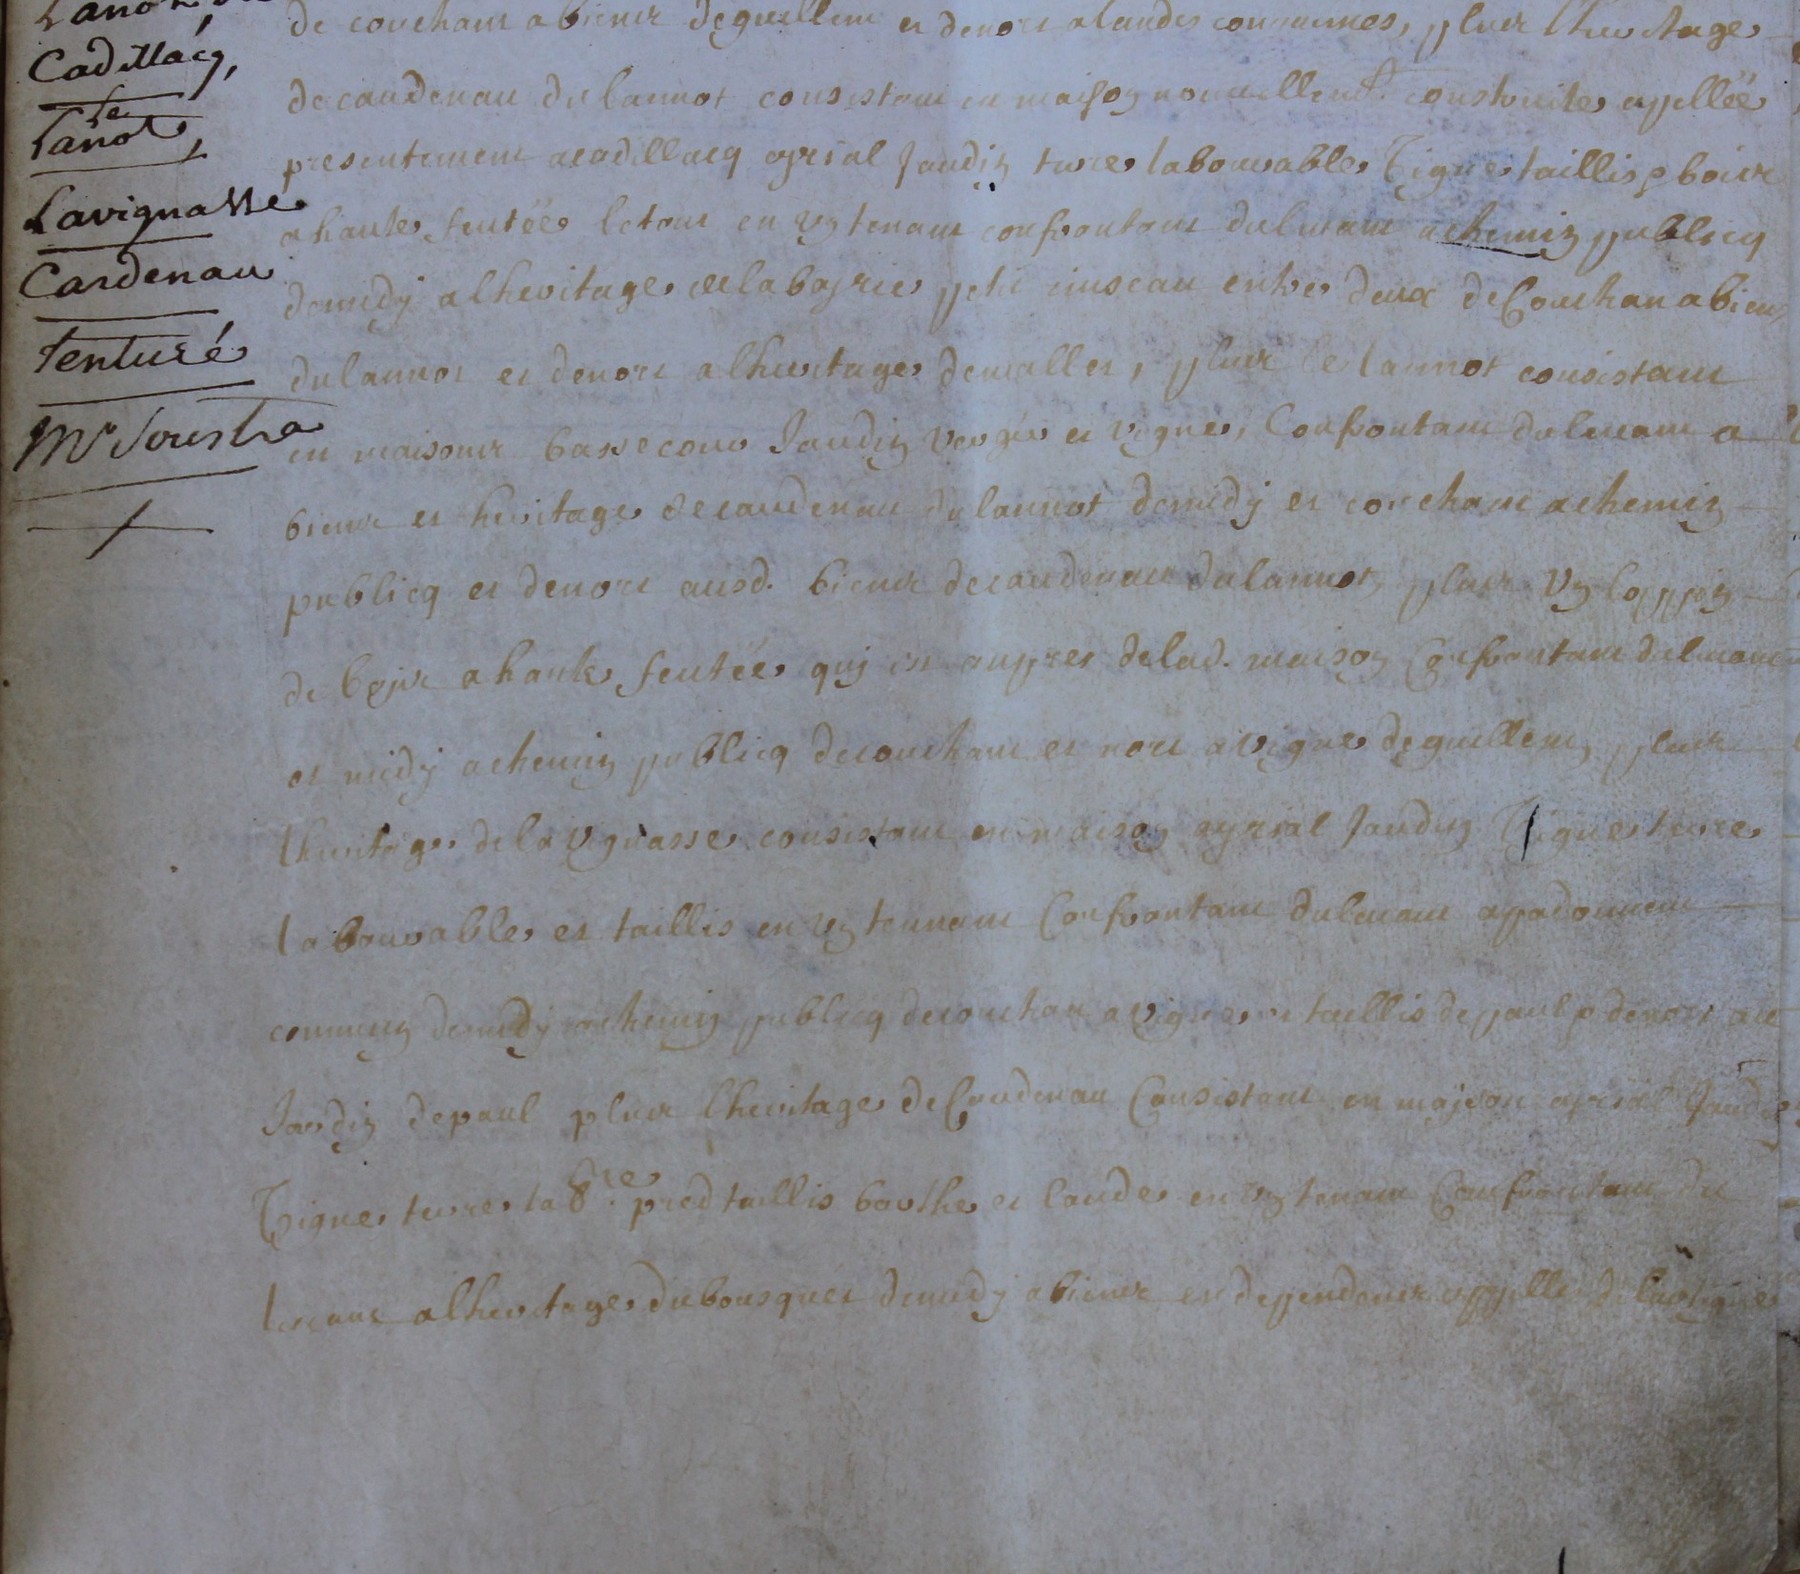 Cadillacq,
Le
Lanot,
Lavignasse
Cardenau
tenture
Mr Soustra
de couchant a biens deguillem et denort a landes communes, plus lheritage
de cardenau du lannot consistant en maison nouvellemt. construite appellée
presentement a cadillacq ayrial Jardin terre labourable Vigne taillis & bois
a haute futée le tout en un tenant confrontant du levant a chemin publicq
de midy a lheritage de labayrie petit ruiseau entre deux de Couchan a biens
du lannot et denort a lheritage demalles, plus le lannot consistant
en maisons bassecour Jardin verger et vigne, Confrontant du levant a
biens et heritage de cardenau du lannot de midy et couchant a chemin
publicq et denort ausd. biens de cardenau du lannot, plus un loppin
de bois a haute futée quy est aupres de lad. maison Confrontant du levant
et midy a chemin publicq de couchant et nort a vigne deguillem, plus
lheritage de lavignasse consistant en maison ayrial Jardin Vigne terre
labourable et taillis en un tennant Confrontant du levant a padouent
commun de midy a chemin publicq de couchan a vigne et taillis de paul & denort au
Jardin de paul plus lheritage de Cardenau Consistant en maison ayrial Jardin
Vigne terre labre. pred taillis barthe et lande en un tenant Confrontant du
levant a lheritage du bousquet de midy a biens et dependences appellé de lavigne